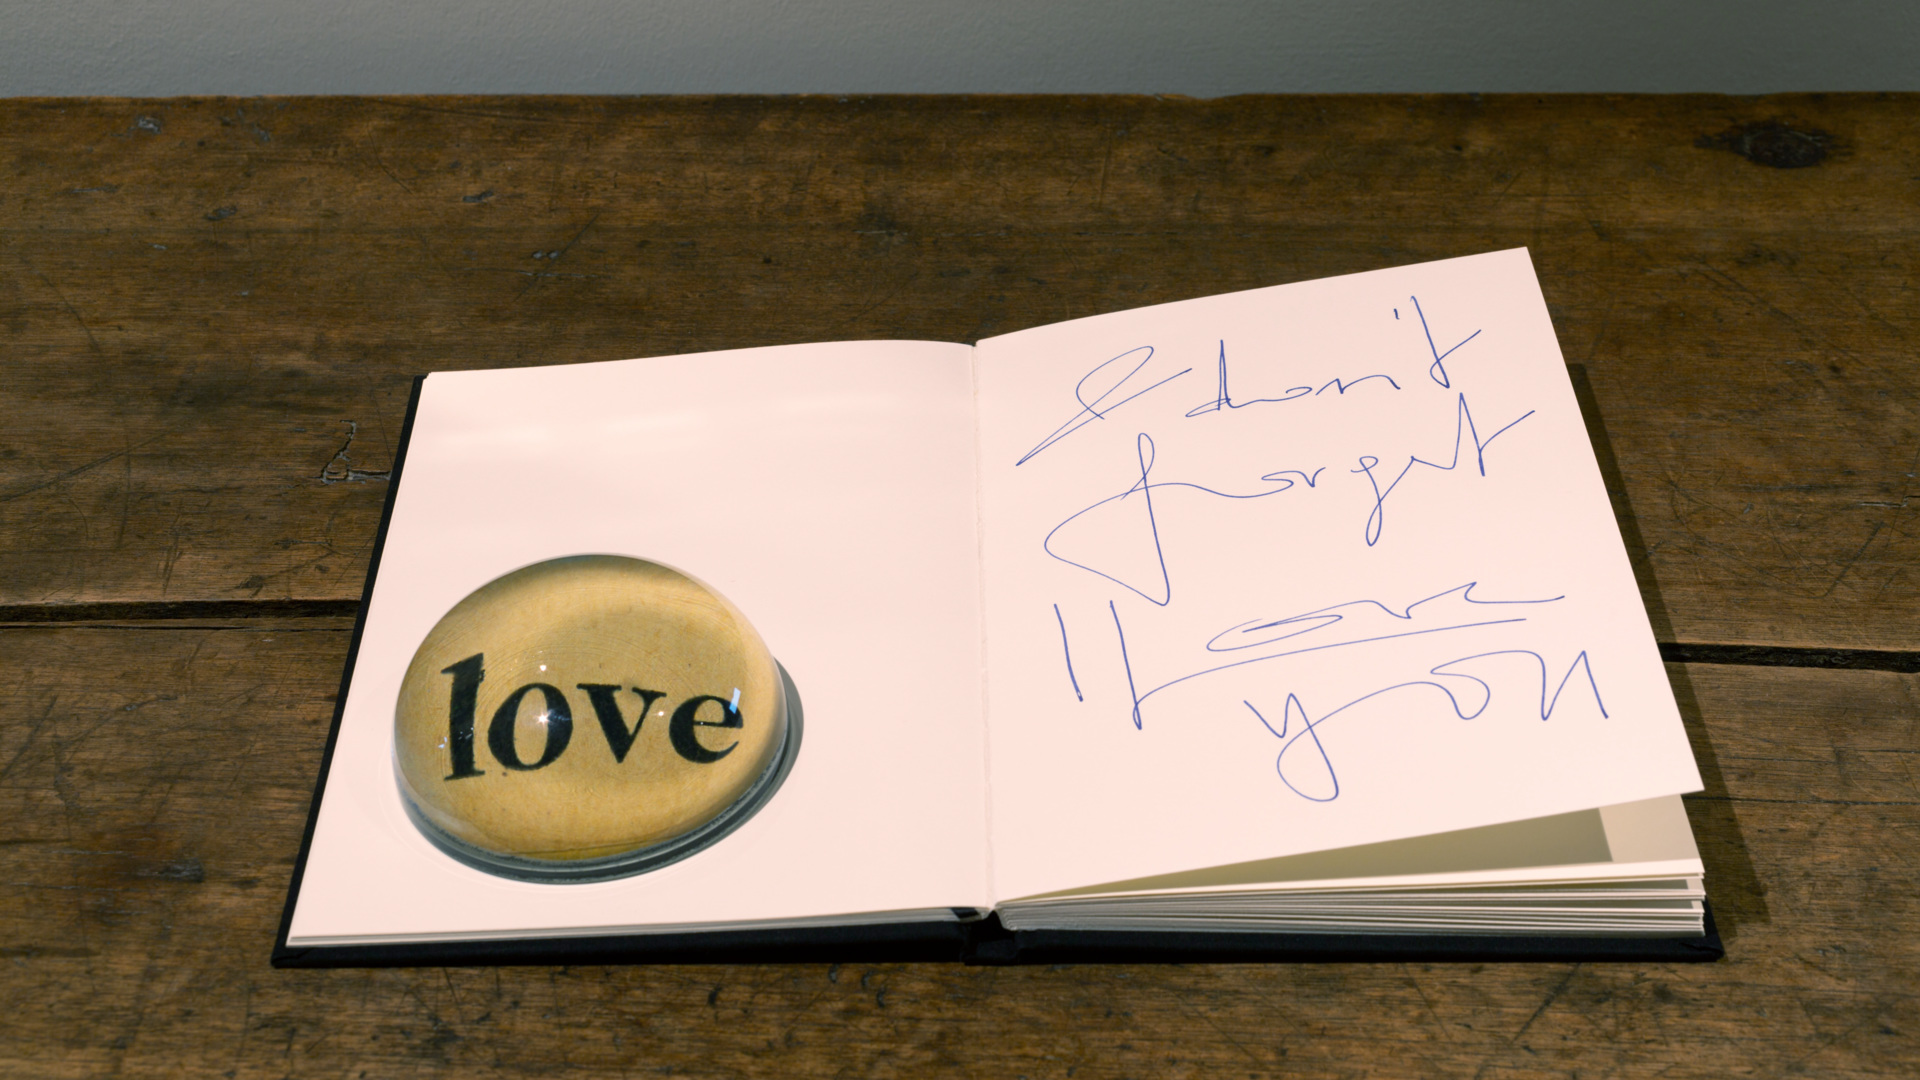 love
I don't
forget
I love
you